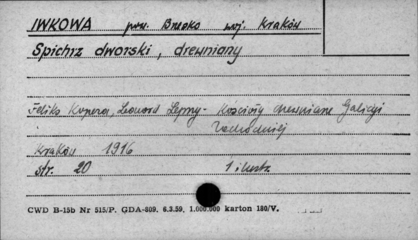 IWKOWA pow. Brzesko woj. Kraków
Spichrz dworski, drewniany
Feliks Kopera, Leonard Lepszy - Kościoły drewniane Galicyi
Zachodniej
Kraków 1916
str. 20 1 ilustr.
CWD B-15b Nr 515/P. GDA-809. 6.3.59. 1.000.000 karton 180/V.